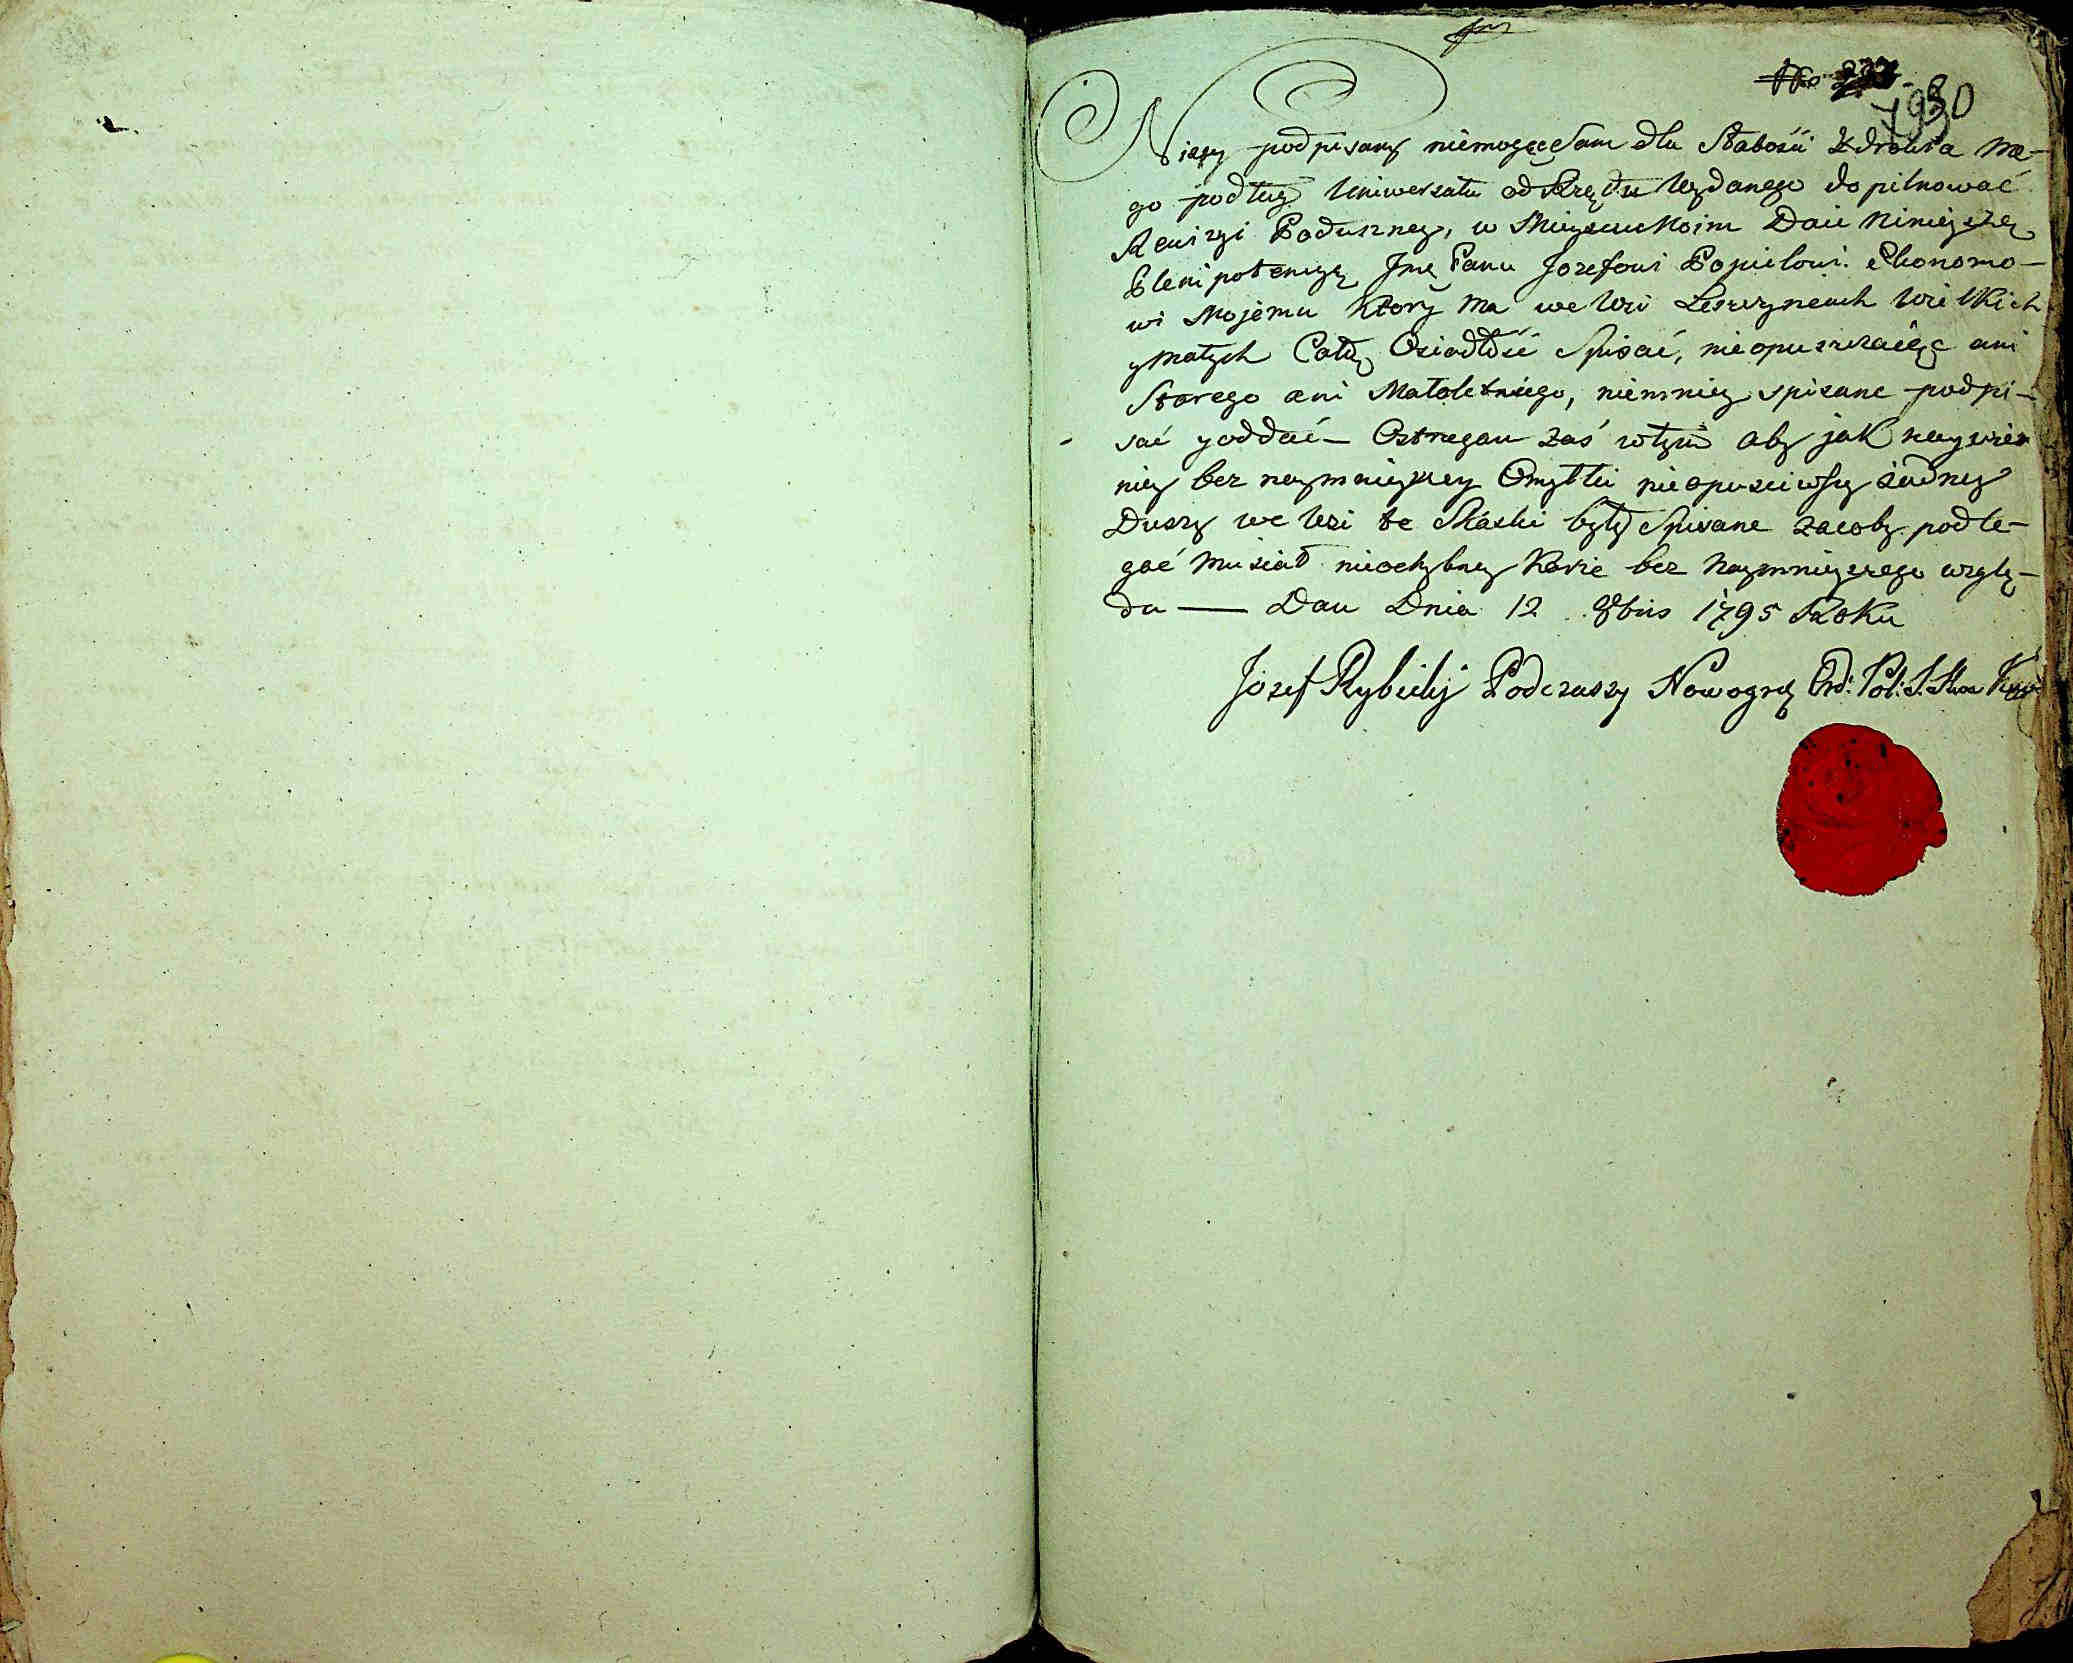 1930
Niżey podpisany niemogąc Sam dla Słabości Zdrowia me-
go podług Uniwersału od Rządu Wydanego dopilnować
Rewizyi Poduszney, w Mieyscu Moim Daie Ninieyszą
Plenipotencyą Jmę Panu Jozefowi Popielowi Ekonomo-
wi Mojemu Ktory Ma we Wsi Leszczyncach Wielkich
y Małych Całą Osiadłość Spisać, nieopuszczaiąc ani
Starego ani Małoletniego, niemniey spisane podpi-
sać y oddać - Ostrzegam zaś wtym aby jak naywier
niey bez naymnieyszey Omyłki nieopusciwszy żadney
Duszy we Wsi te Skaski były Spisane zacoby podle-
gać Musiał nieochybney Karze bez Naymnieyszego wzglę-
du — Dan Dnia 12 8bris 1795 Roku
Józef Rybicky Podczaszy Nowogrd